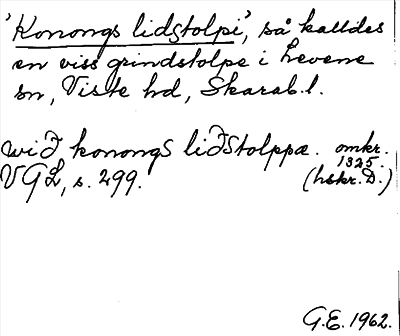 'Konongs lidstolpi', så kalldes
en viss grindstolpe i Levene
sn, Viste hd, Skarab.l.
wið konongs liðstolppæ. omkr. 1325.
VGL, s. 299. (hskr. D.)
G.E. 1962.